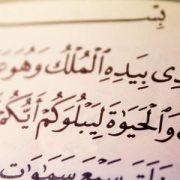 بِسْ
ذِى بِيَدِهِ ٱلْمُلْكُ وَهُوَ
وَٱلْحَيَوٰةَ لِيَبْلُوَكُمْ أَيُّكُمْ
سَبْعَ سَمَٰوَٰتٍ